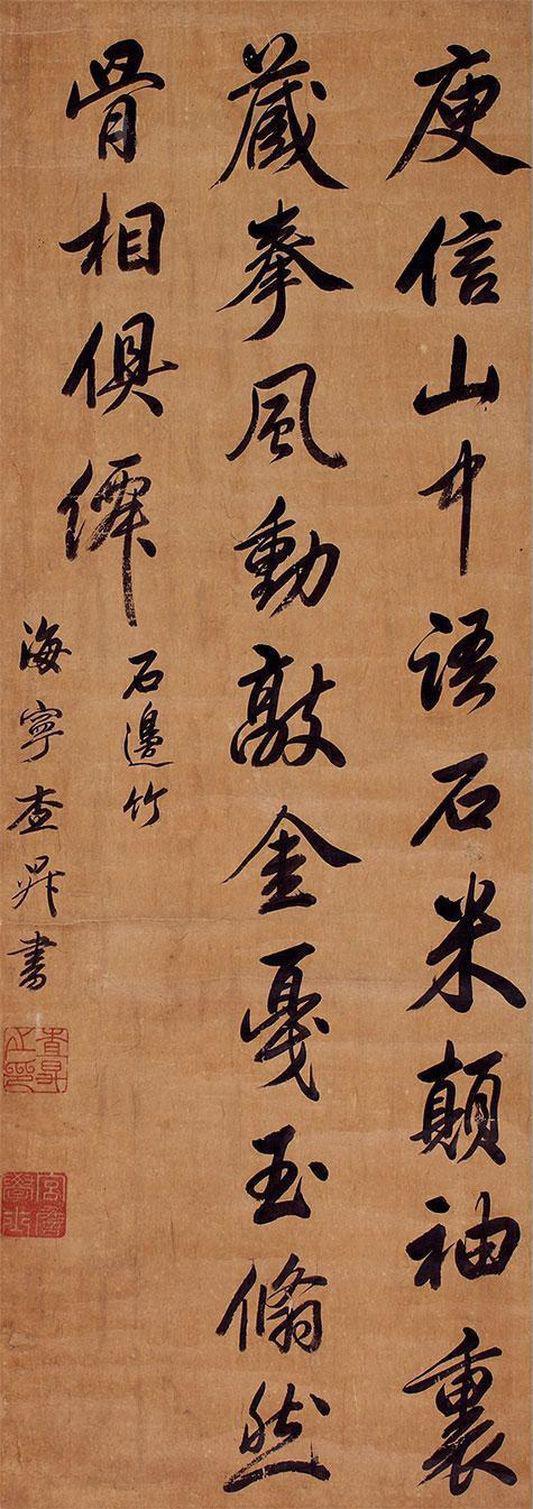 庾信山中語石米顛袖裏
藏拳風動敲金戛玉翛然
骨相俱僊
石邊竹
海寧查昇書